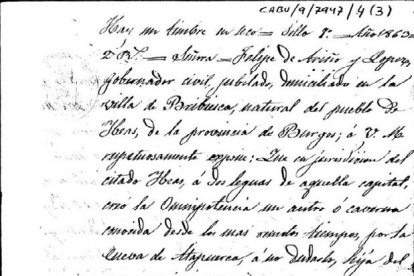 CABU/9/7947/4(3)
Hay un timbre en seco = Sello 1º = Año 1863 =
Señora = Felipe de Ariño y Lopez,
gobernador civil, jubilado, domiciliado en la
villa de Bribiesca, natural del pueblo de
Heas, de la provincia de Burgos; á V. M.
respetuosamente expone: Que en jurisdicion del
citado Heas, á dos leguas de aquella capital,
creó la Omnipotencia un antro ó caverna
conocida desde los mas remotos tiempos, por la
Cueva de Atapuerca, á no dudarlo, hija del